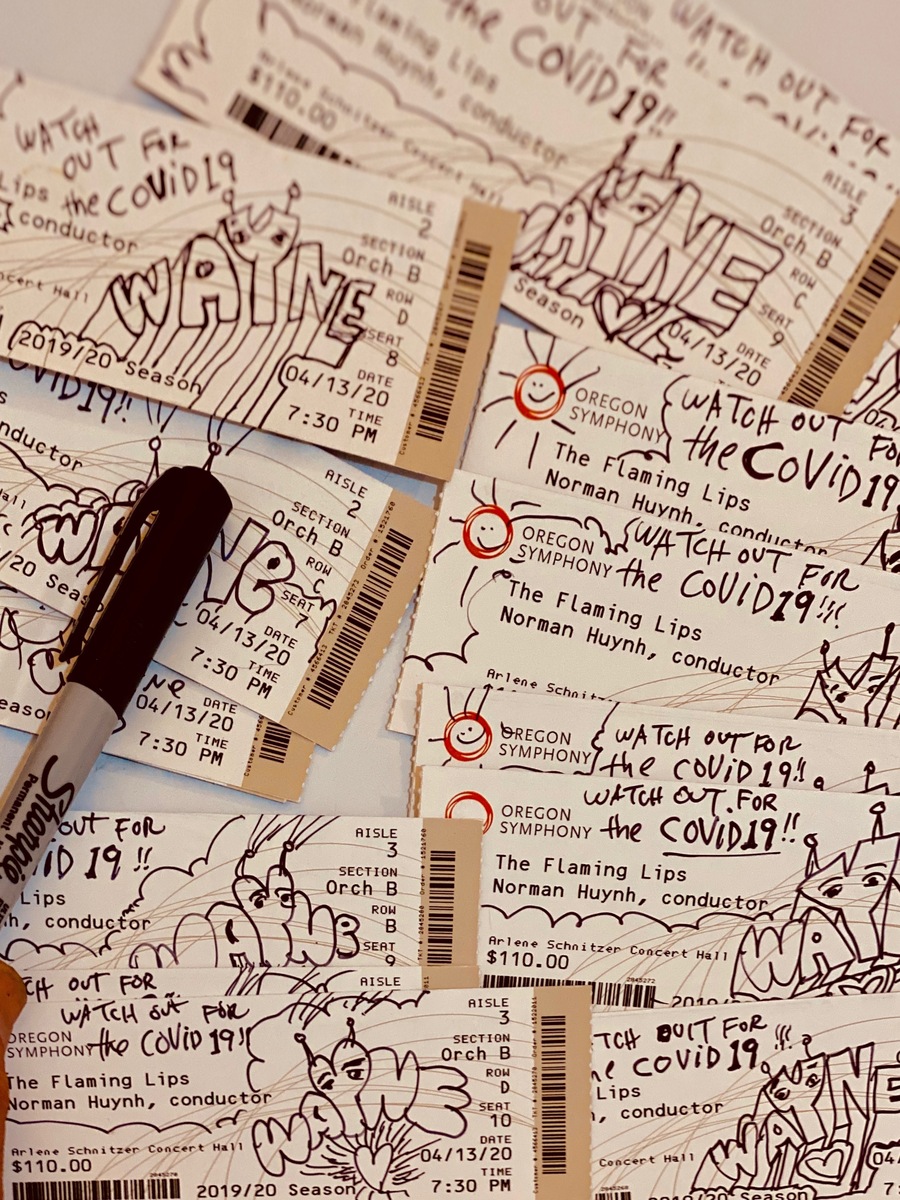 WATCH OUT FOR
OUT FOR
the COVID19!!
Flaming Lips
Norman Huynh, conductor
Arlene Schnitzer Concert Hall
$110.00
AISLE
3
SECTION
Orch B
ROW
C
SEAT
9
DATE
04/13/20
Season
WAYNE
WATCH
OUT FOR
the COVID19
Lips
conductor
Concert Hall
WAYNE
2019/20 Season
AISLE
2
SECTION
Orch B
ROW
D
SEAT
8
DATE
04/13/20
TIME
7:30 PM
COVID19!!
conductor
AISLE
2
SECTION
Orch B
ROW
C
SEAT
7
DATE
04/13/20
TIME
7:30 PM
DATE
04/13/20
TIME
7:30 PM
Sharpie
Permanent
OREGON
SYMPHONY
WATCH OUT FOR
the COVID19
The Flaming Lips
Norman Huynh, conductor
OREGON
SYMPHONY
WATCH OUT FOR
the COVID19!!!
The Flaming Lips
Norman Huynh, conductor
Arlene Schnitz
OREGON
SYMPHONY
WATCH OUT FOR
the COVID 19!!
OREGON
SYMPHONY
WATCH OUT FOR
the COVID19!!
The Flaming Lips
Norman Huynh, conductor
Arlene Schnitzer Concert Hall
$110.00
2845272
WAY
OUT FOR
ID 19 !!
Lips
h, conductor
WAYNE
AISLE
3
SECTION
Orch B
ROW
B
SEAT
9
TCH OUT FOR
AISLE
WATCH OUT FOR
OREGON
SYMPHONY
the COVID19!!
The Flaming Lips
Norman Huynh, conductor
WAYNE
Arlene Schnitzer Concert Hall
$110.00
2019/20 Season
AISLE
3
SECTION
Orch B
ROW
D
SEAT
10
DATE
04/13/20
TIME
7:30 PM
TCH OUIT FOR
e COVID 19 !!!
Lips
, conductor
WAYNE
Concert Hall
04/